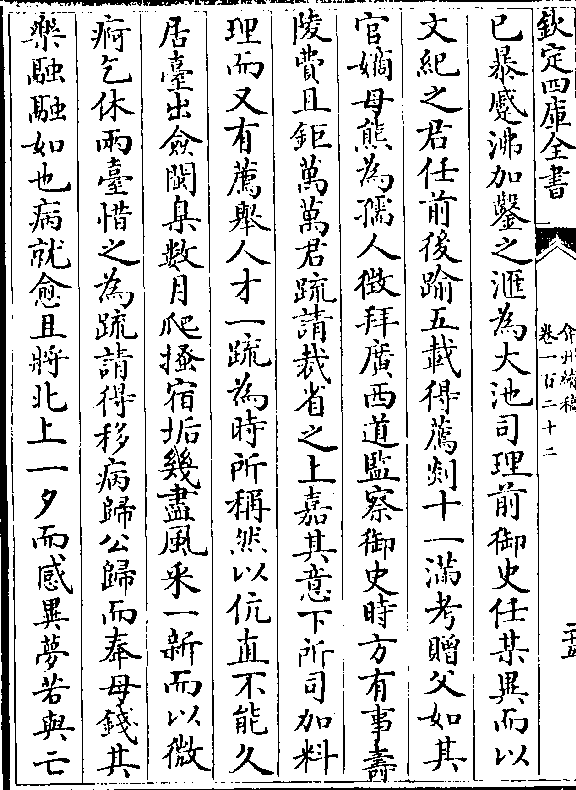 欽定四庫全書
弇州續稿
卷一百二十二
二十五
已暴蹙沸加鑿之滙為大池司理前御史任某異而以
文紀之君任前後踰五載得薦剡十一滿考贈父如其
官嫡母熊為孺人徴拜廣西道監察御史時方有事壽
陵費且鉅萬萬君疏請裁省之上嘉其意下所司加料
理而又有薦舉人才一疏為時所稱然以伉直不能久
居臺出僉閩臬數月爬搔宿垢幾盡風采一新而以微
疴乞休兩臺惜之為疏請得移病歸公歸而奉母錢其
樂融融如也病就愈且將北上一夕而感異夢若與亡